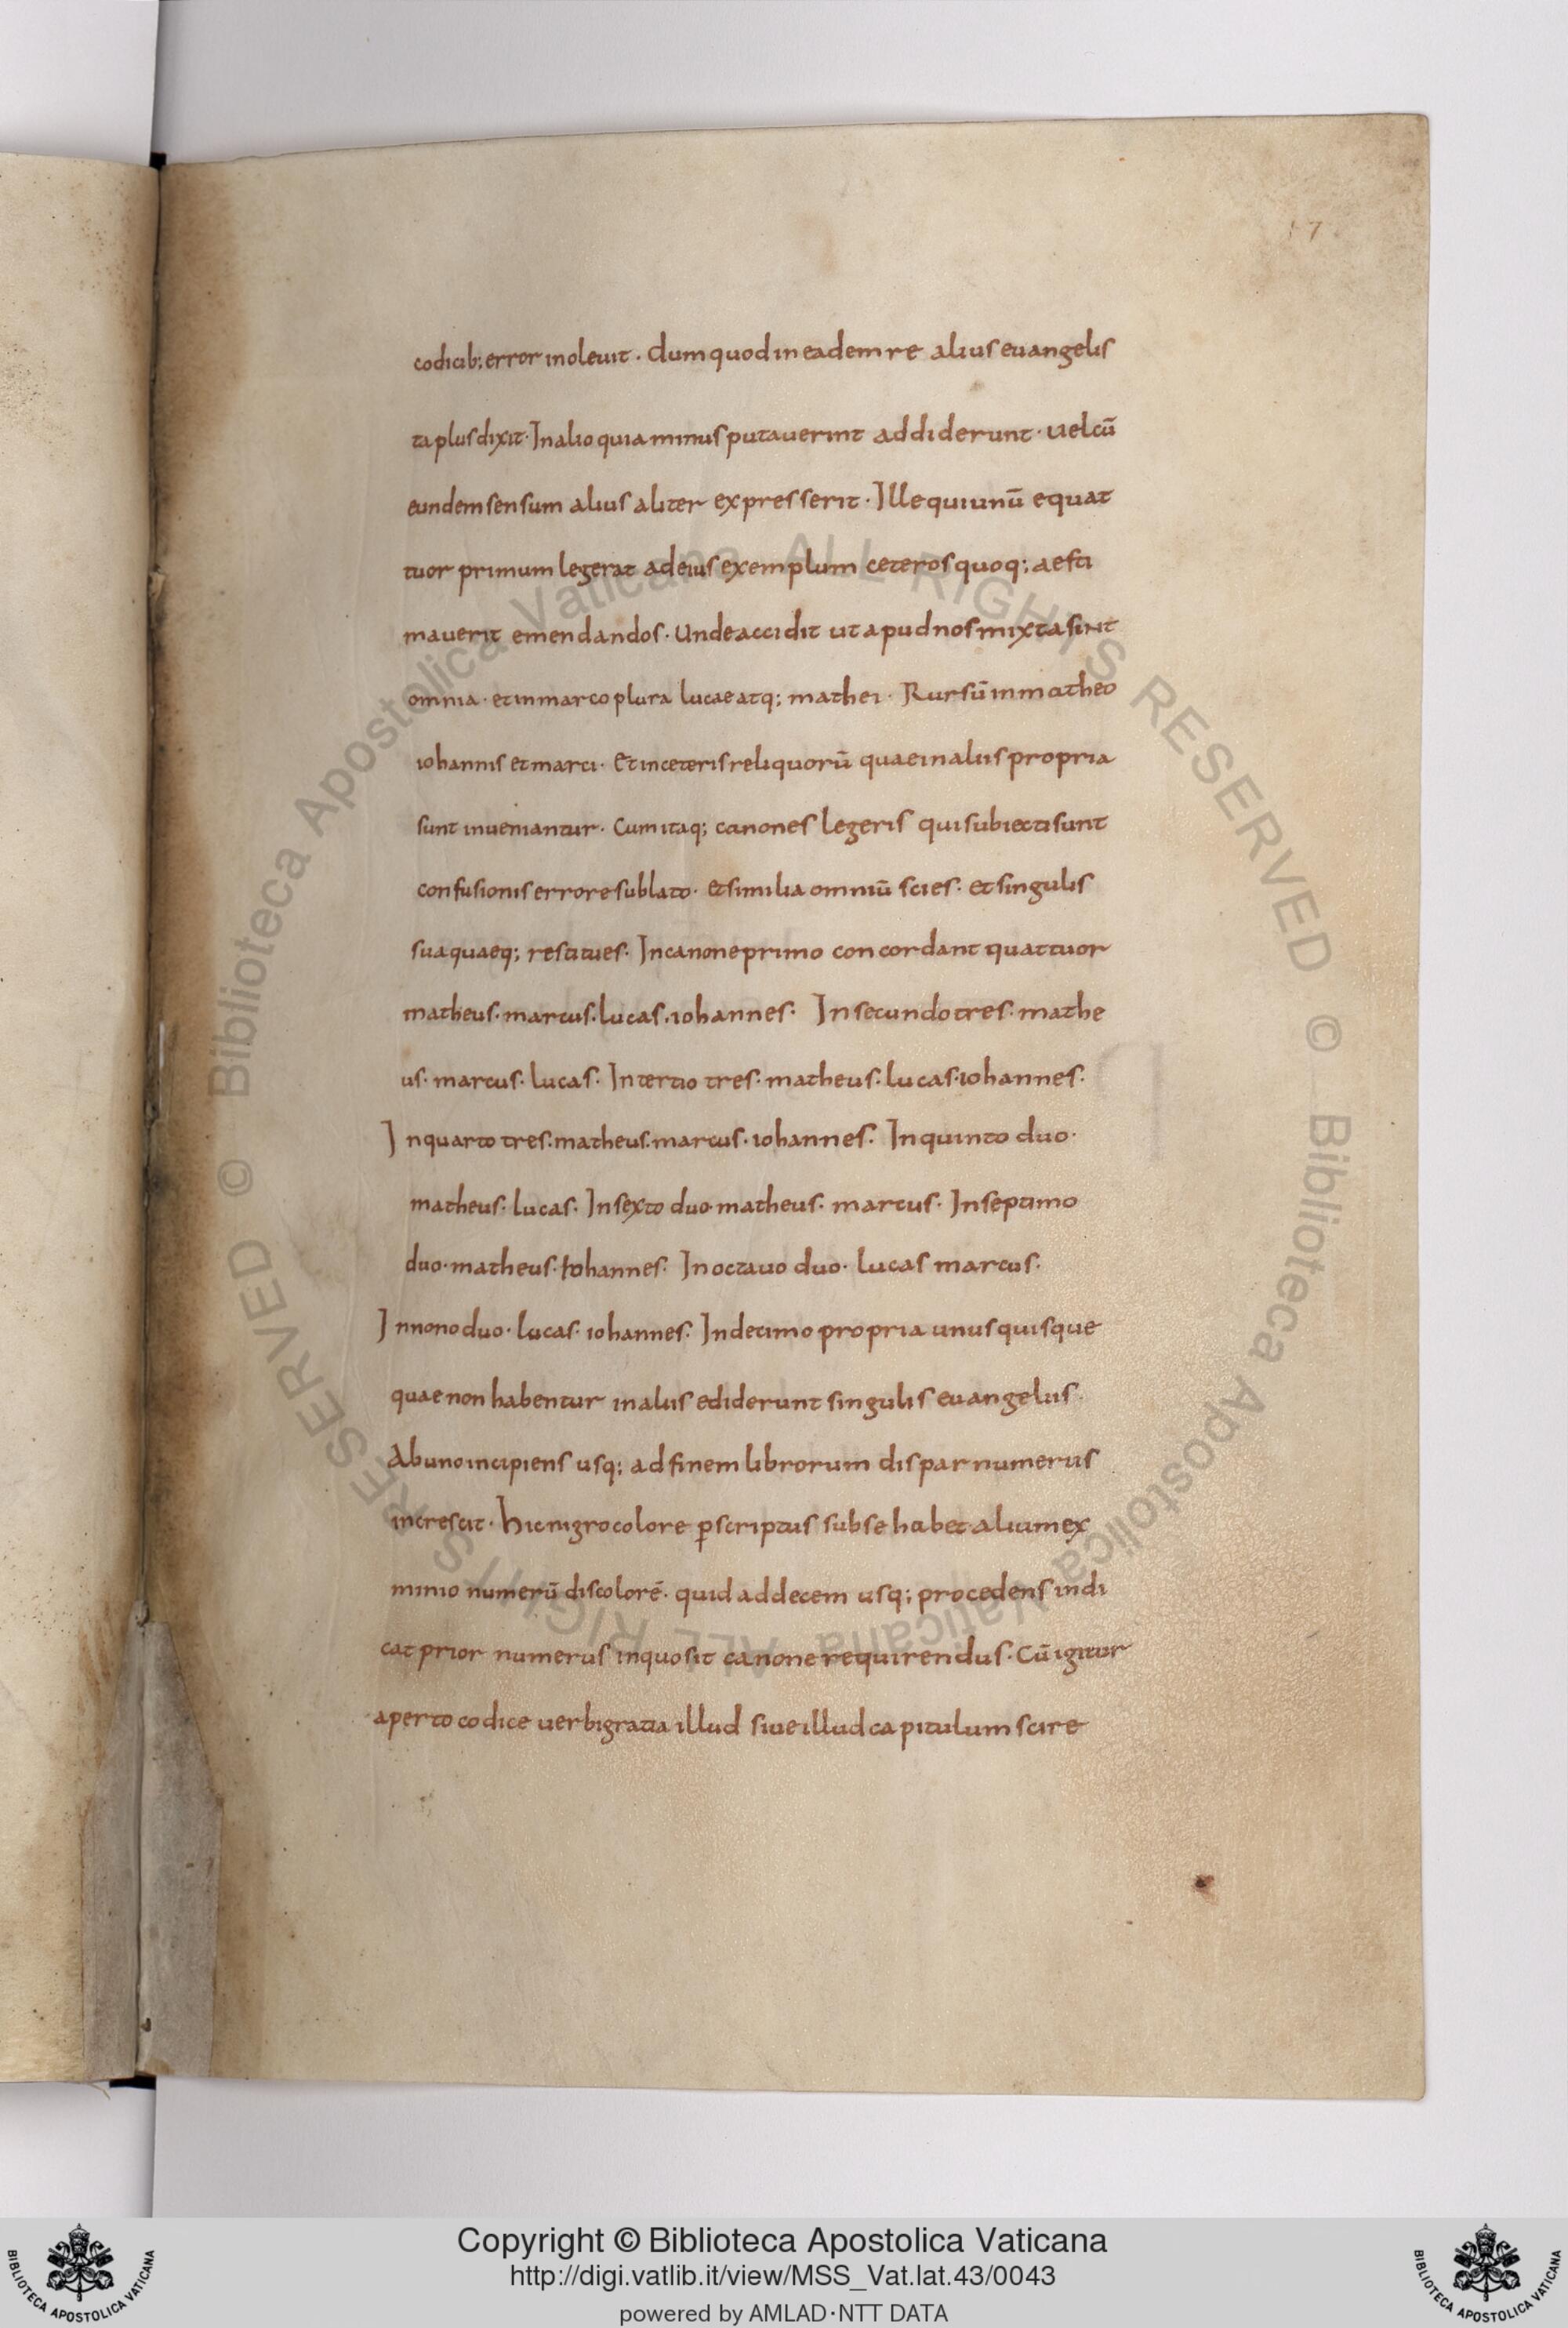 17
codicib; error inoleuit · dum quod in eadem re alius euangelis
ta plus dixit · In alio quia minus putauerint addiderunt · uel cū
eundem sensum alius aliter expresserit · Ille qui unū e quat
tuor primum legerat ad eius exemplum ceteros quoq; aesti
mauerit emendandos · Unde accidit ut apud nos mixta sint
omnia · et in marco plura lucae atq; mathei · Rursū in matheo
iohannis et marci · Et in ceteris reliquorū quae in aliis propria
sunt inueniantur · Cum itaq; canones legeris qui subiecti sunt
confusionis errore sublato · et similia omniū scies · et singulis
sua quaeq; restitues · In canone primo concordant quattuor
matheus · marcus · lucas · iohannes · In secundo tres · mathe
us · marcus · lucas · In tertio tres · matheus · lucas · iohannes ·
In quarto tres · matheus · marcus · iohannes · In quinto duo ·
matheus · lucas · In sexto duo · matheus · marcus · In septimo
duo · matheus · Iohannes · In octauo duo · lucas marcus ·
In nono duo · lucas · iohannes · In decimo propria unusquisque
quae non habentur in aliis ediderunt singulis euangeliis ·
Ab uno incipiens usq; ad finem librorum dispar numerus
increscit · hic nigro colore pscriptus sub se habet alium ex
minio numerū discolorē · quid ad decem usq; procedens indi
cat prior numerus in quo sit canone requirendus · Cū igitur
aperto codice uerbi gratia illud siue illud capitulum scire
Copyright © Biblioteca Apostolica Vaticana
http://digi.vatlib.it/view/MSS_Vat.lat.43/0043
powered by AMLAD·NTT DATA
BIBLIOTECA APOSTOLICA VATICANA
BIBLIOTECA APOSTOLICA VATICANA
© Biblioteca Apostolica Vaticana ALL RIGHTS RESERVED
© Biblioteca Apostolica Vaticana ALL RIGHTS RESERVED